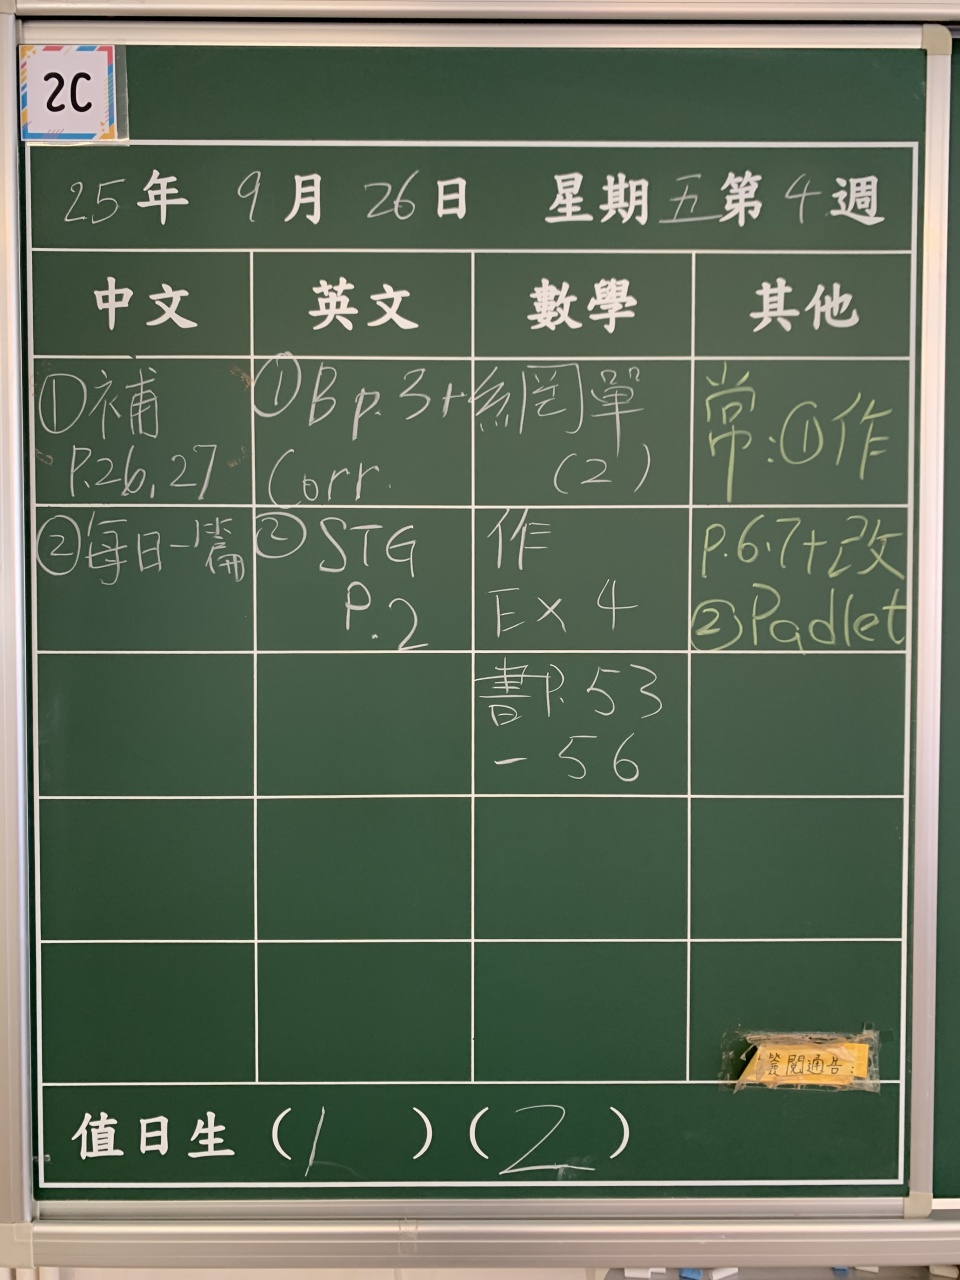 2C
25年 9月 26日 星期五第4週
中文 英文 數學 其他
①補
P.26,27
①B p.3+
Corr.
網單
(2)
常:①作
②每日一篇
②STG
P.2
作
Ex 4
p.6-7+改
②Padlet
書P.53
-56
簽閱通告:
值日生(1)(2)